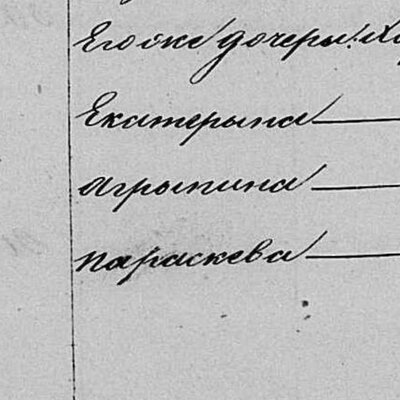 Егоже дочеры:
Екатерына
Агрыпина
Параскева